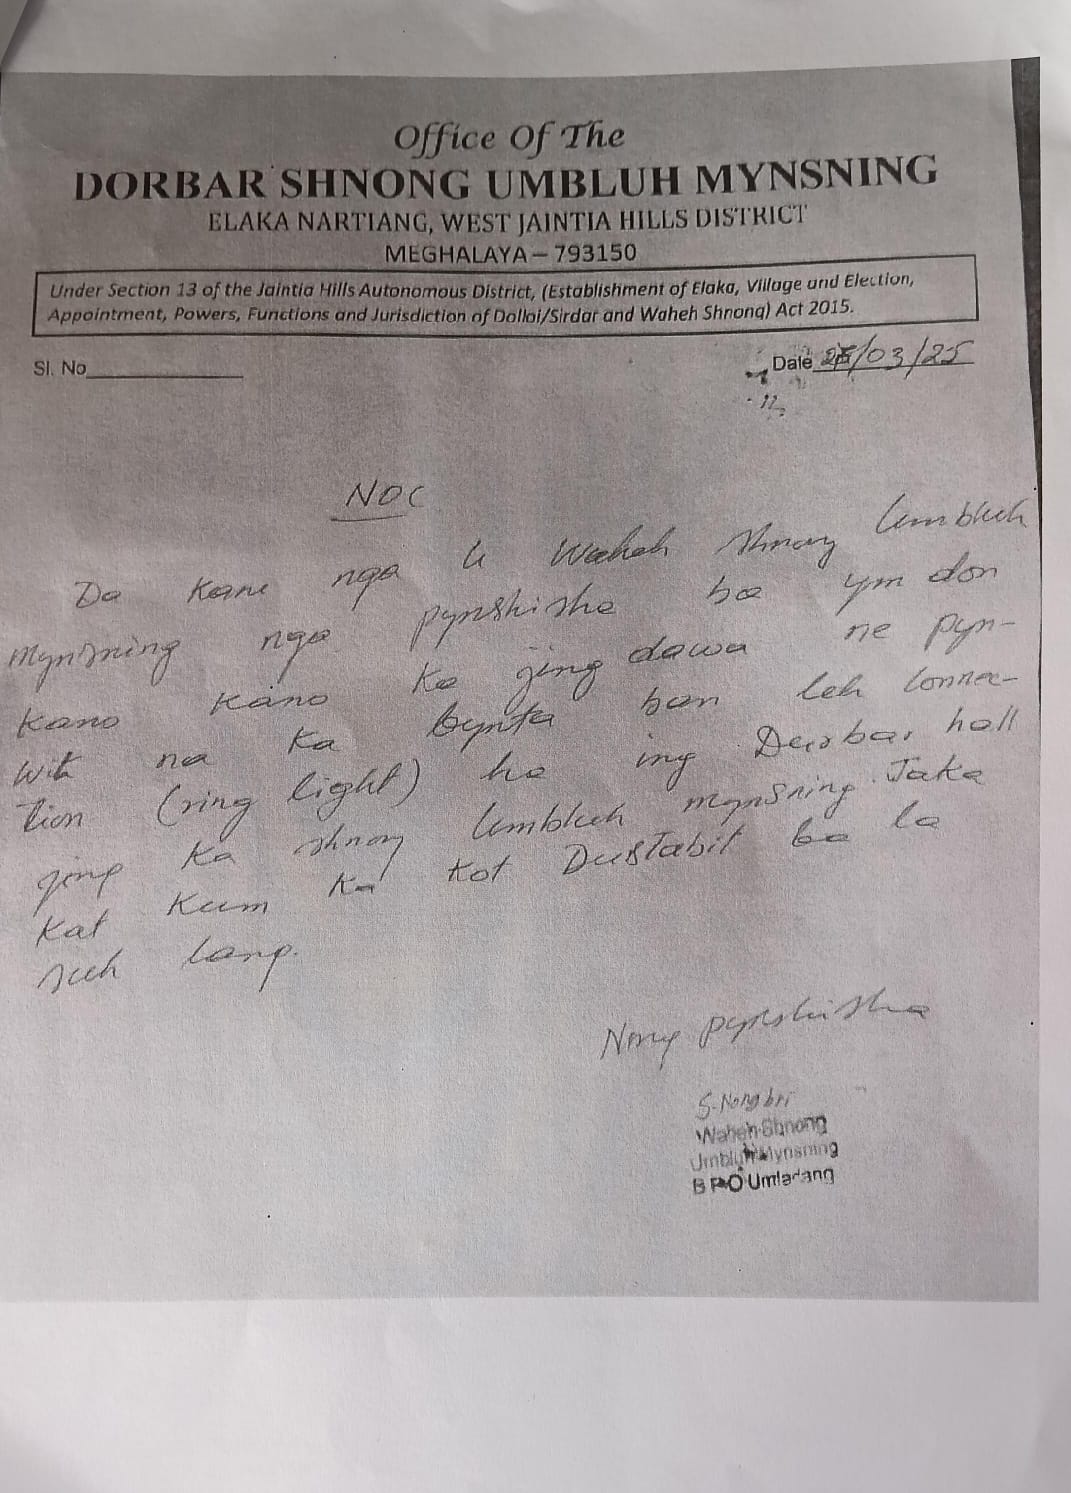 Office Of The
DORBAR SHNONG UMBLUH MYNSNING
ELAKA NARTIANG, WEST JAINTIA HILLS DISTRICT
MEGHALAYA – 793150
Under Section 13 of the Jaintia Hills Autonomous District, (Establishment of Elaka, Village and Election,
Appointment, Powers, Functions and Jurisdiction of Dolloi/Sirdar and Waheh Shnong) Act 2015.
Sl. No
Date /03/25
NOC
Da Kane nga u Waheh Shnong Umbluh
Mynsning nga pynshisha ba ym don
kano kano ka jingdawa ne pyn-
wit na ka bynta ban leh Connec-
tion (ring light) ha ing Dorbar hall
jong ka shnong Umbluh mynsning. Jaka
kat kum ka kot Dustabit ba la
suh lang.
Nong pynshisha
S. Nongbri
Waheh Shnong
Umbluh Mynsning
B P O Umladang